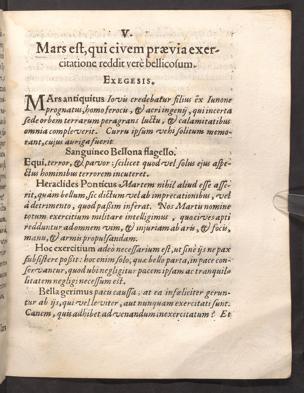 V.
Mars est, qui civem prævia exer-
citatione reddit verè bellicosum.
EXEGESIS.
MArs antiquitus Iovis credebatur filius ex Iunone
prognatus, homo ferocis, & acri ingenij, qui incerta
sede orbem terrarum peragrans luctu, & calamitatibus
omnia compleverit. Curru ipsum vehi solitum memo-
rant, cujus auriga fuerit
Sanguineo Bellona flagello.
Equi, terror, & pavor: scilicet quod vel solus ejus aspe-
ctus hominibus terrorem incuteret.
Heraclides Ponticus Martem nihil aliud esse asse-
rit, quàm bellum, sic dictum vel ab imprecationibus, vel
à detrimento, quod passim inferat. Nos Martis nomine
totum exercitium militare intelligimus, quo cives apti
redduntur ad omnem vim, & injuriam ab aris, & focis,
manu, & armis propulsandam.
Hoc exercitium adeò necessarium est, ut sinè ijs ne pax
subsistere possit: hoc enim solo, que bello parta, in pace con-
servantur, quod ubi negligitur pacem ipsam ac tranquil-
litatem negligi necessum est.
Bella gerimus pacis caussa: at ea infæliciter gerun-
tur ab ijs, qui vel leviter, aut nunquam exercitati sunt.
Canem, quis adhibet ad venandum inexercitatum? Et